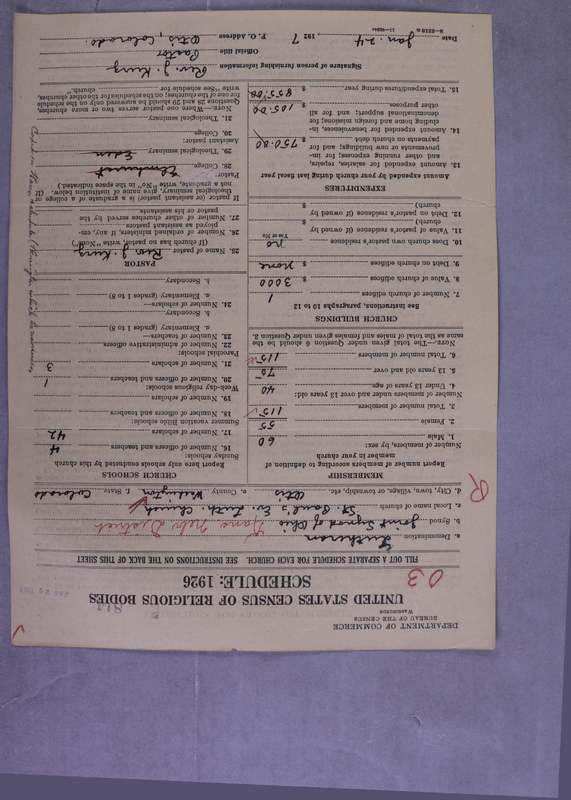 DEPARTMENT OF COMMERCE
BUREAU OF THE CENSUS
WASHINGTON
811
UNITED STATES CENSUS OF RELIGIOUS BODIES
SCHEDULE: 1926
03
FILL OUT A SEPARATE SCHEDULE FOR EACH CHURCH. SEE INSTRUCTIONS ON THE BACK OF THIS SHEET
a. Denomination Lutheran
b. Synod Joint Synod of Ohio
c. Local name of church St. Paul's Ev. Luth. Church
d. City, town, village, or township, etc. Otis e. County Washington f. State Colorado
R
MEMBERSHIP
Report number of members according to definition of
member in your church
Number of members, by sex:
1. Male 60
2. Female 55
3. Total number of members 115
Number of members under and over 13 years old:
4. Under 13 years of age 40
5. 13 years old and over 75
6. Total number of members 115
NOTE.—The Total given under Question 6 should be the
same as the total of males and females given under Question 3.
CHURCH BUILDINGS
See instructions, paragraphs 10 to 12
7. Number of church edifices 1
8. Value of church edifices $ 3000
9. Debt on church edifices $ none
10. Does church own pastor's residence no
Yes or No
11. Value of pastor's residence (if owned by
church) $
12. Debt on pastor's residence (if owned by
church) $
EXPENDITURES
Amount expended by your church during last fiscal year
13. Amount expended for salaries, repairs,
and other running expenses; for im-
provements or new buildings; and for
payments on church debt $ 750.00
14. Amount expended for benevolences, in-
cluding home and foreign missions; for
denominational support; and for all
other purposes $ 105.00
15. Total expenditures during year $ 855.00
CHURCH SCHOOLS
Report here only schools conducted by this church
Sunday schools:
16. Number of officers and teachers 4
17. Number of scholars 42
Summer vacation Bible schools:
18. Number of officers and teachers
19. Number of scholars
Week-day religious schools:
20. Number of officers and teachers 1
21. Number of scholars 3
Parochial schools:
22. Number of administrative officers
23. Number of teachers—
a. Elementary (grades 1 to 8)
b. Secondary
24. Number of scholars—
a. Elementary (grades 1 to 8)
b. Secondary
PASTOR
25. Name of pastor Rev. J. King
(If church has no pastor, write "None")
26. Number of ordained ministers, if any, em-
ployed as assistant pastors
27. Number of other churches served by the
pastor or his assistants
If pastor (or assistant pastor) is a graduate of a college or
theological seminary, give name of institution below. (If
not a graduate, write "No" in the space indicated.)
Pastor:
28. College Elmhurst
29. Theological seminary Eden
Assistant pastor:
30. College
31. Theological seminary
NOTE.—Where one pastor serves two or more churches,
Questions 28 and 29 should be answered only on the schedule
for one of the churches; on the schedules for the other churches,
write "See schedule for church."
Signature of person furnishing information Rev. J. King
Official title Pastor
Date Jan. 24, 1927 P. O. Address Otis, Colorado.